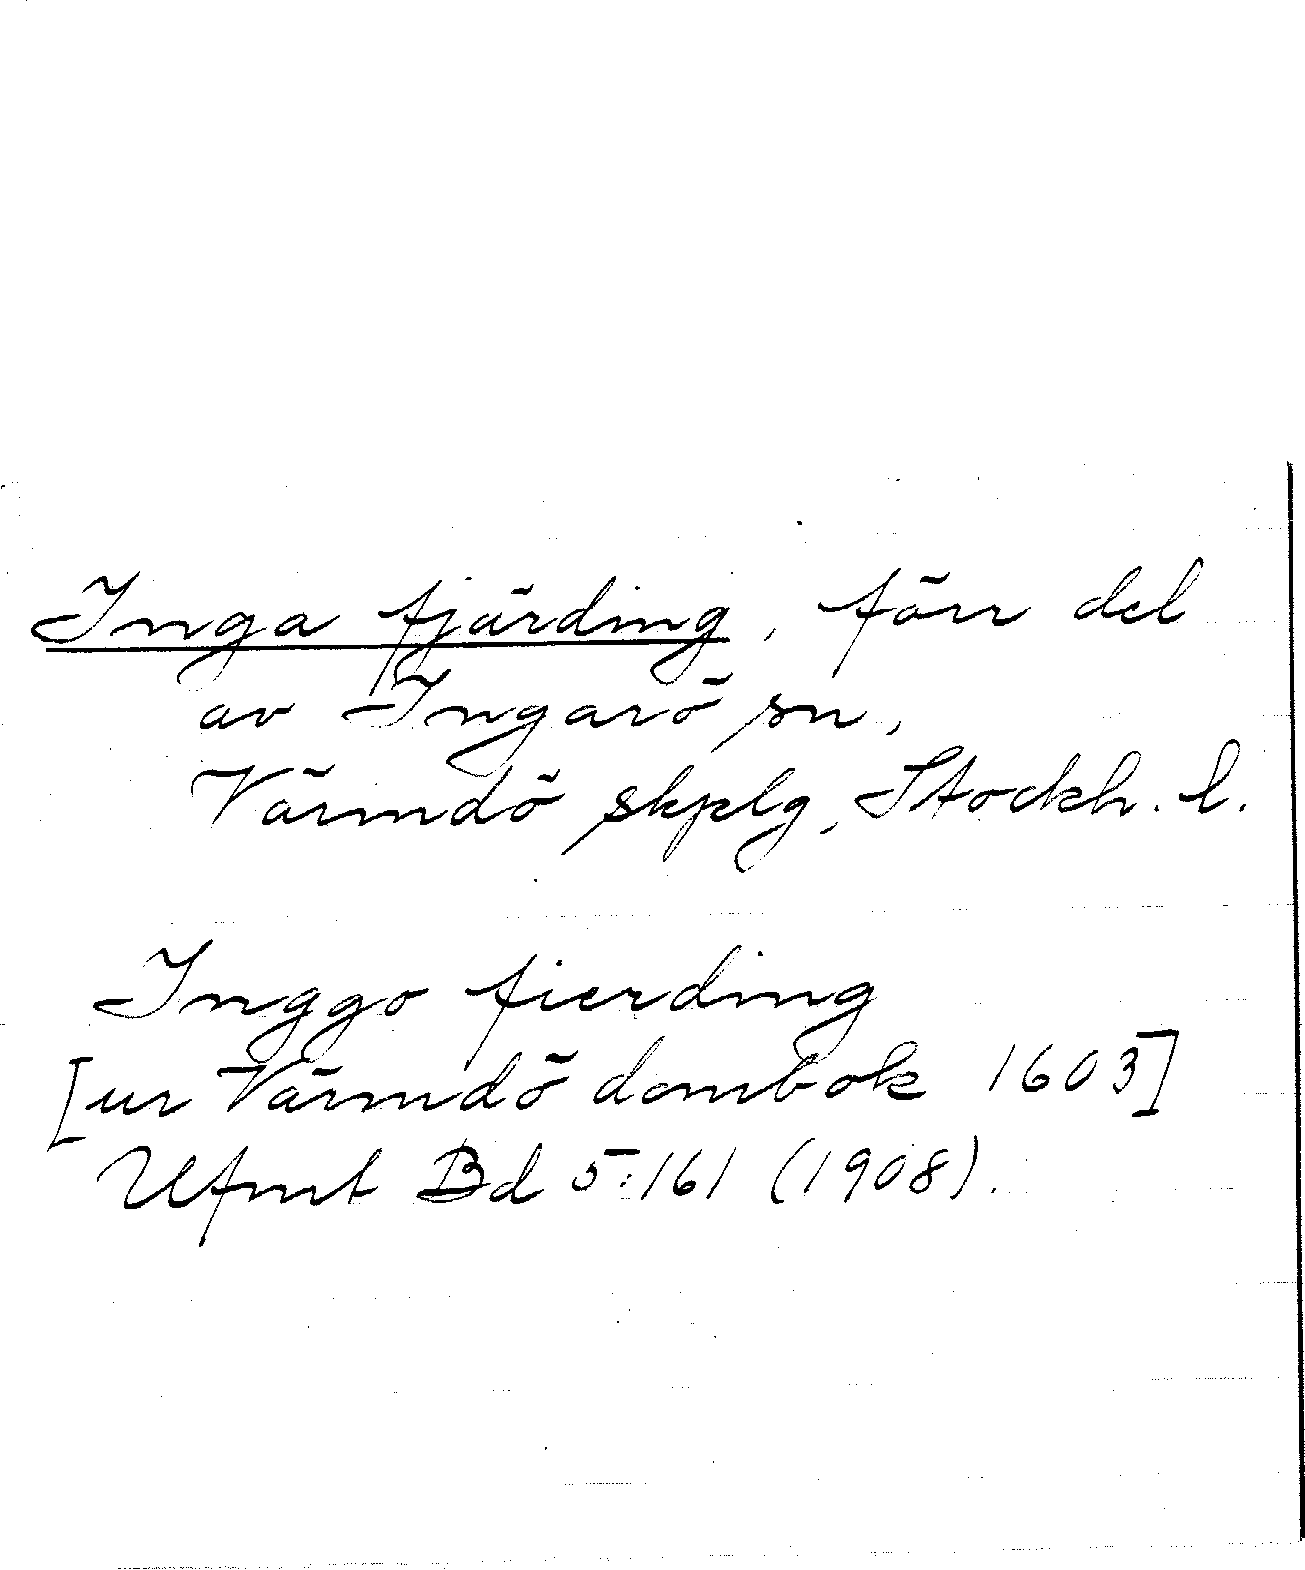 Inga fjärding, förr del
av Ingarö sn,
Värmdö skplg, Stockh. l.
Inggo fierding
[ur Värmdö dombok 1603]
Ufmt Bd 5:161 (1908).